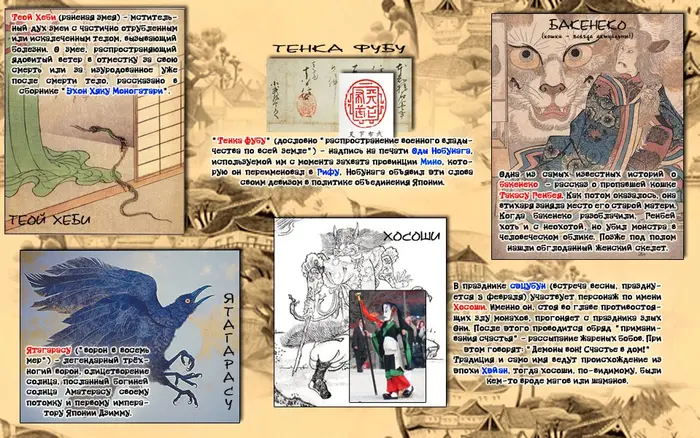 Теой Хеби (раненая змея) - мститель-
ный дух змеи с частично отрубленным
или искалеченным телом, вызывающий
болезни. О змее, распространяющий
ядовитый ветер в отместку за свою
смерть или за изуродованное уже
после смерти тело, рассказано в
сборнике "Эхон Хяку Моногатари".
ТЕОЙ ХЕБИ
ТЕНКА ФУБУ
天下布武
"Тенка фубу" (дословно "распространение военного влады-
чества по всей земле") - надпись на печати Оды Нобунага,
используемой им с момента захвата провинции Мино, кото-
рую он переименовал в Гифу. Нобунага объявил эти слова
своим девизом в политике объединения Японии.
БАКЕНЕКО
(кошки - всегда демицури!)
Одна из самых известных историй о
бакенеко - рассказ о пропавшей кошке
Такасу Генбея. Как потом оказалось, она
втихаря заняла место его старой матери.
Когда бакенеко разоблачили, Генбей
хоть и с неохотой, но убил монстра в
человеческом облике. Позже под полом
нашли обглоданный женский скелет.
ЯТАГАРАСУ
Ятагарасу ("ворон в восемь
мер") - легендарный трёх-
ногий ворон, олицетворение
солнца, посланный богиней
солнца Аматерасу своему
потомку и первому импера-
тору Японии Дзимму.
ХОСОШИ
В празднике сэцубун (встреча весны, праздну-
ется 3 февраля) участвует персонаж по имени
Хосоши. Именно он, стоя во главе противостоя-
щих злу монахов, прогоняет с праздника злых
Они. После этого проводится обряд "примани-
вания счастья" - рассыпание жареных бобов. При
этом говорят: "Демоны вон! Счастье в дом!"
Традиция и само имя ведут происхождение из
эпохи Хэйан, тогда хосоши, по-видимому, были
кем-то вроде магов или шаманов.